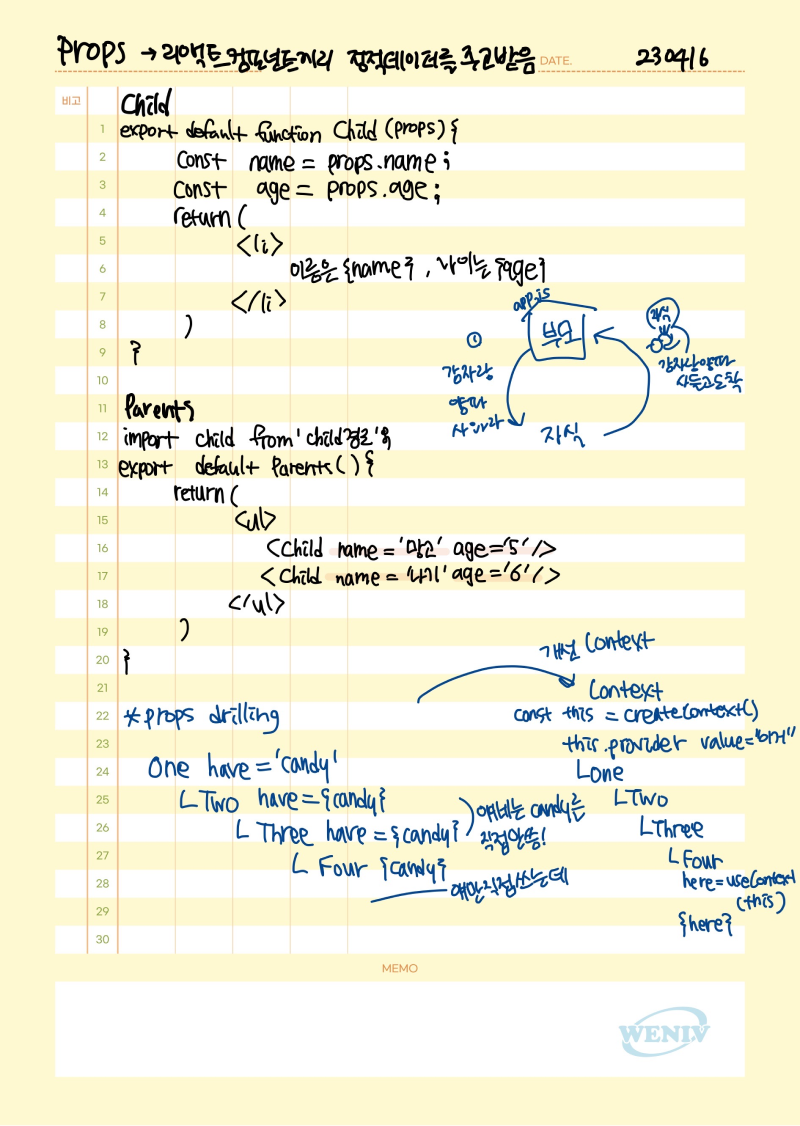 Props → 리액트 컴포넌트끼리 정적데이터를 주고받음 DATE. 230416
비고 Child
1 export default function Child (props) {
2 const name = props.name ;
3 const age = props.age ;
4 return (
5 <li>
6 이름은 {name} , 나이는 {age}
7 </li>
8 )
9 }
10
app.js
부모
①
감자랑
양파
사와라
자식
자식
감자랑 양파
사들고 도착
11 Parents
12 import child from 'child경로';
13 export default Parents ( ) {
14 return (
15 <ul>
16 <Child name = '망고' age = '5' />
17 <Child name = '나기' age = '6' />
18 </ul>
19 )
20 }
21
22 *props drilling
23
24 One have = 'candy'
25 ㄴTwo have = {candy}
26 ㄴ Three have = {candy}
27 ㄴ Four {candy}
28
29
30
얘네는 candy를
직접안씀!
얘만 직접쓰는데
개선 Context
Context
const this = createContext()
this.provider value="여기"
ㄴOne
ㄴTwo
ㄴThree
ㄴFour
here = useContext
(this)
{here}
MEMO
WENIV